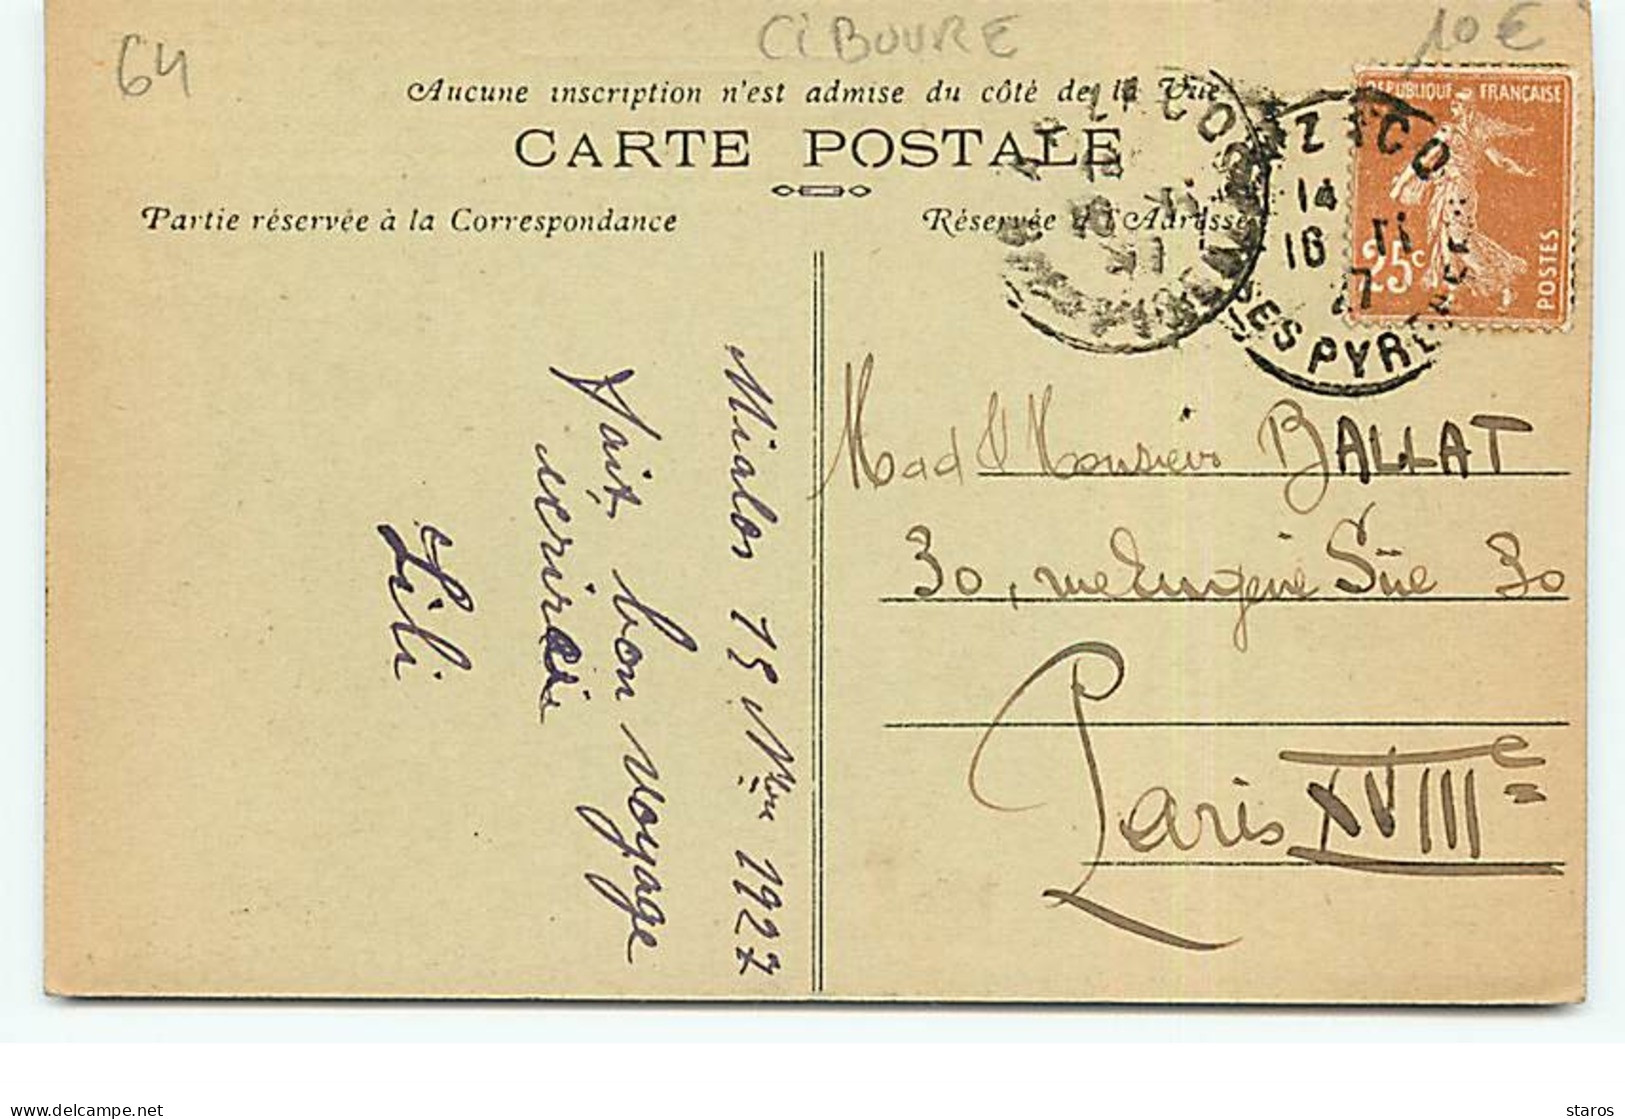 64
CiBOURE
10€
Aucune inscription n'est admise du côté de la Vue
CARTE POSTALE
Partie réservée à la Correspondance
Réservée à l'Adresse
RÉPUBLIQUE FRANÇAISE
25c
POSTES
14
16 11
27
SES PYRENEES
Mialos 15 Nbre 1927
Fait bon voyage
écrirai
Lili
Mad & Monsieur BALLAT
30, rue Eugène Süe 30
Paris XVIIIe
staros